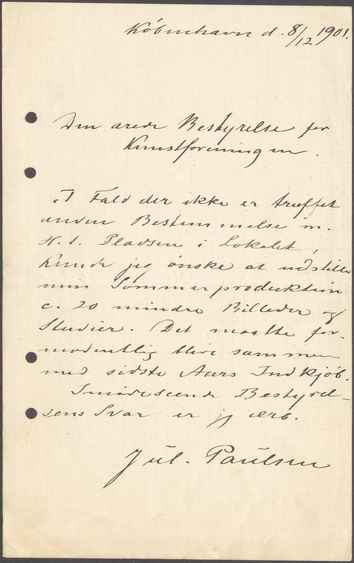 København d. 8/12 1901.
Den ærede Bestyrelse for
Kunstforeningen.
I Fald der ikke er truffet
anden Bestemmelse m.
H. t. Pladsen i Lokalet,
kunde jeg ønske at udstille
min Sommerproduktion
c. 20 mindre Billeder og
Studier. Det maatte for-
modentlig blive sammen
med sidste Aars Indkjøb.
Imødeseende Bestyrel-
sens Svar er jeg ærb.
Jul. Paulsen